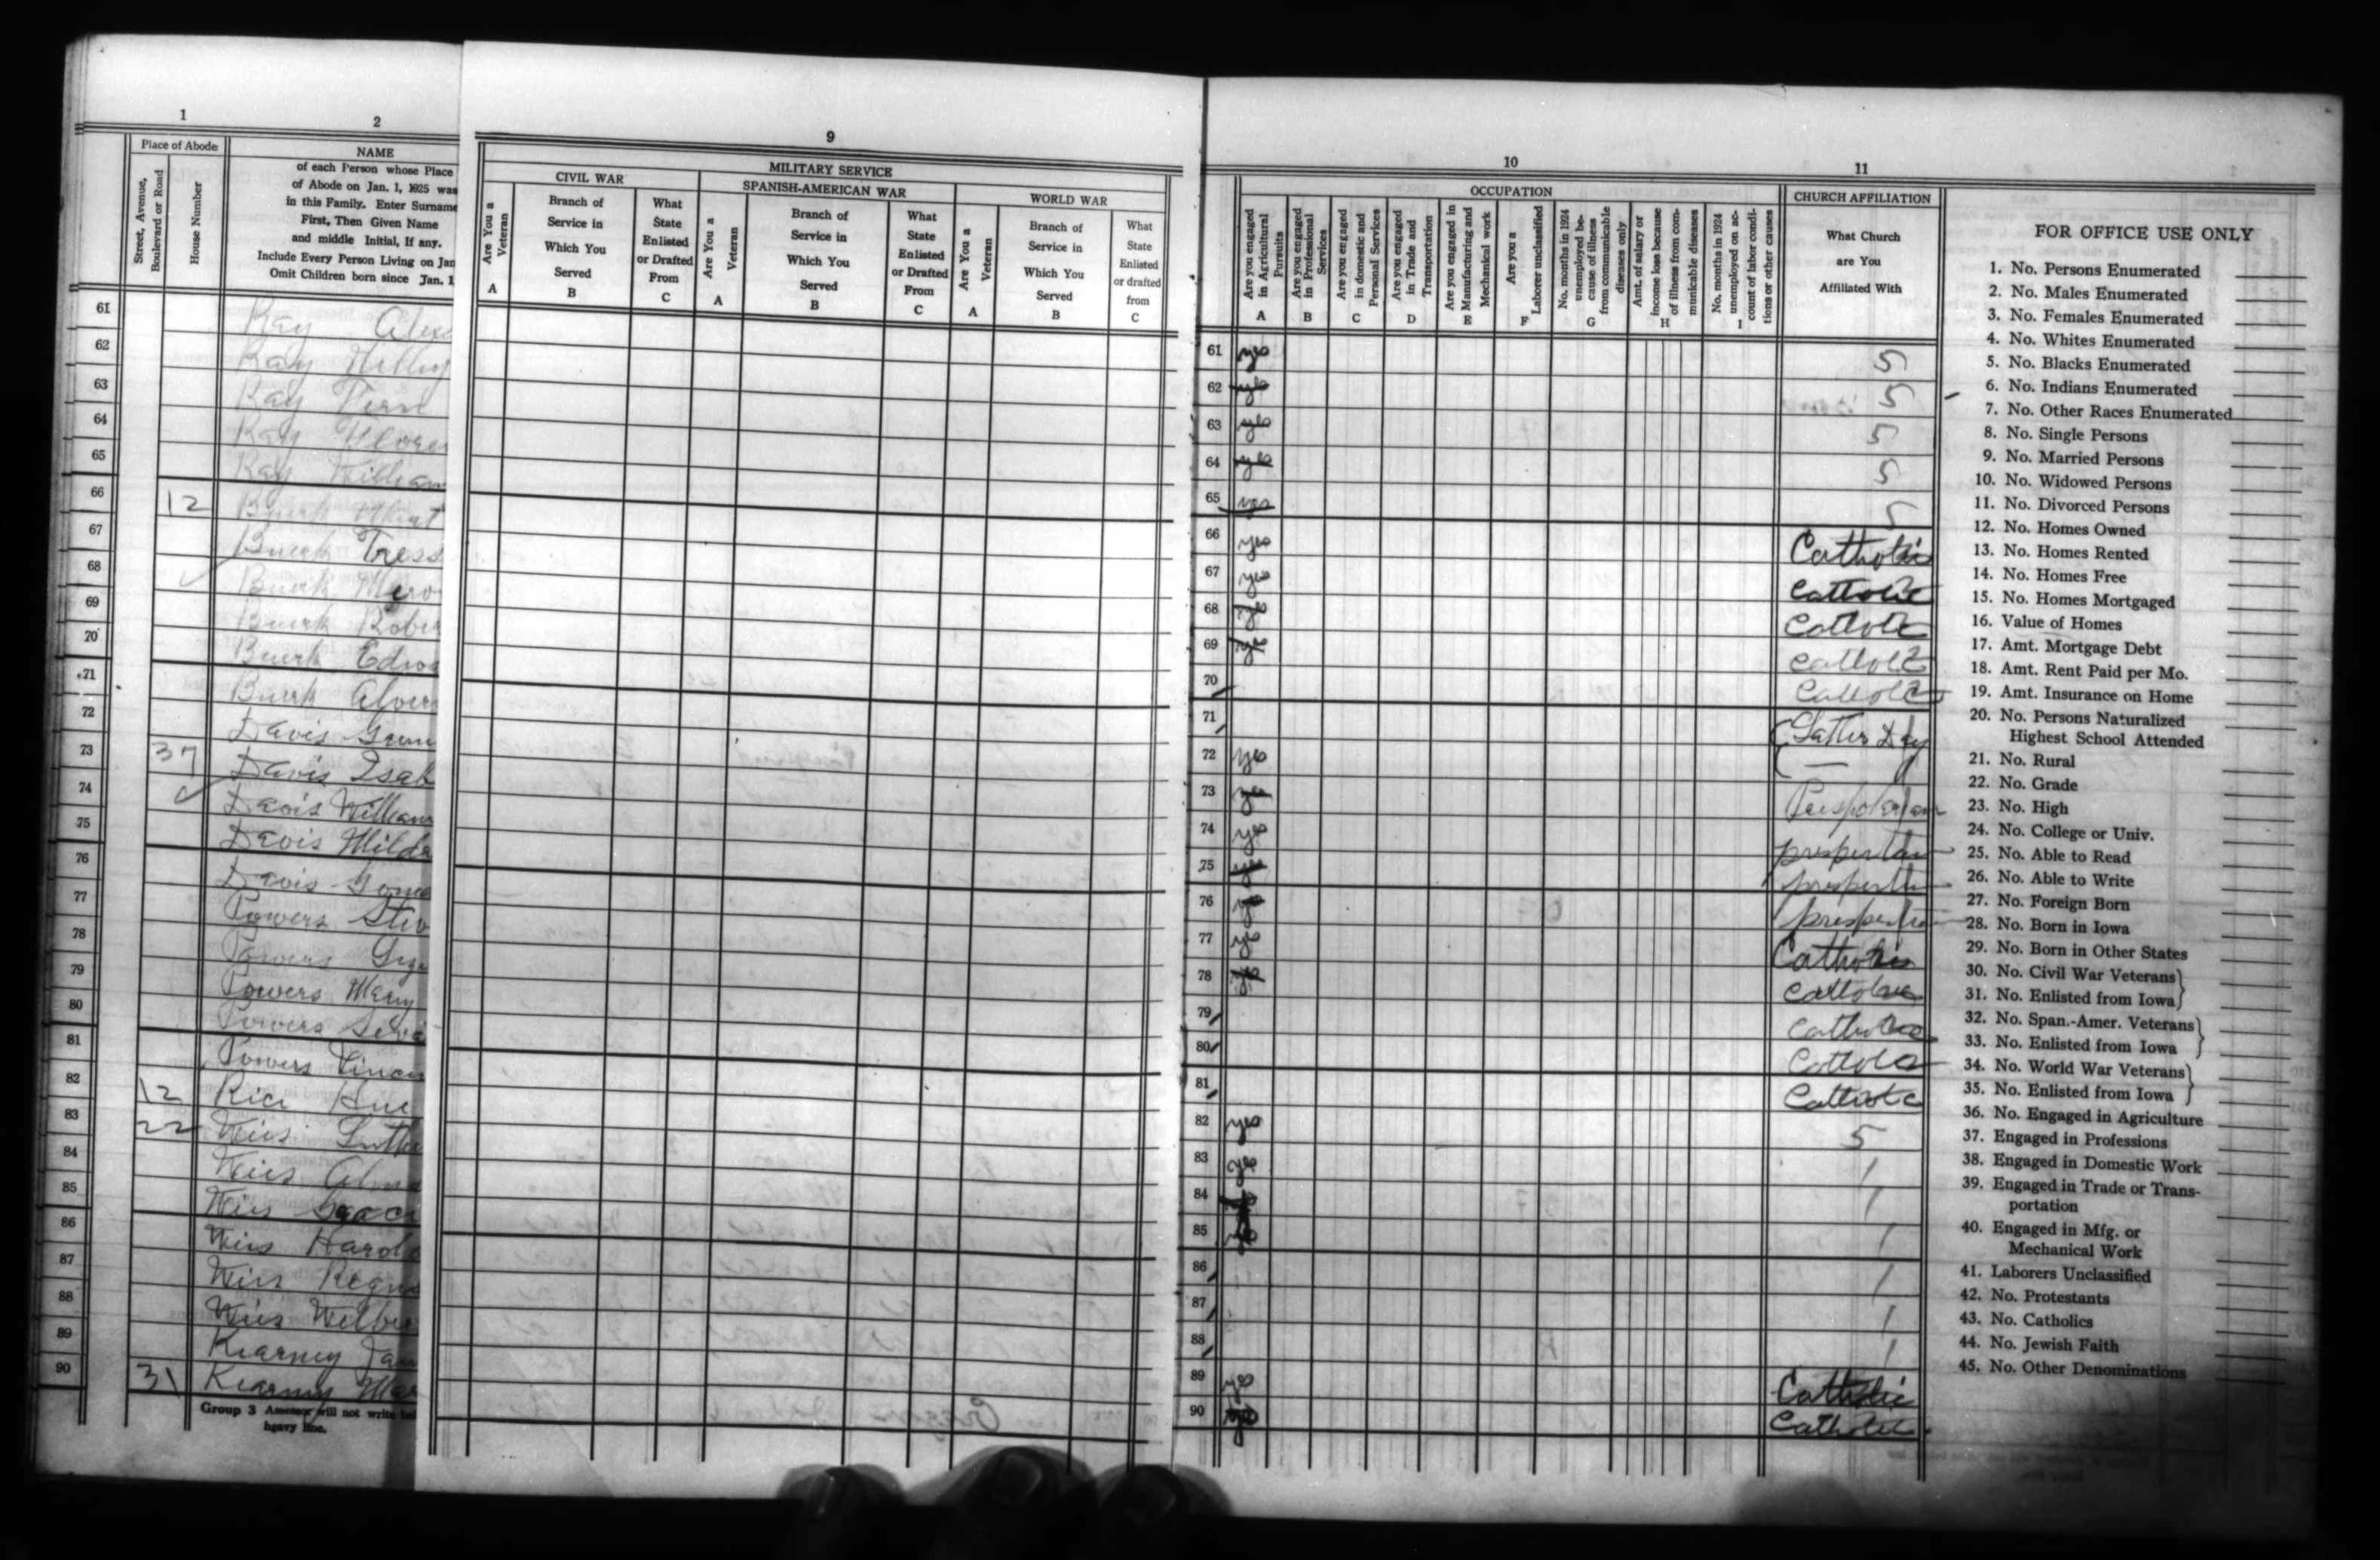 1 2
Place of Abode
Street, Avenue, Boulevard or Road
House Number
NAME
of each Person whose Place
of Abode on Jan. 1, 1925 was
in this Family. Enter Surname
First, Then Given Name
and middle Initial, If any.
Include Every Person Living on Jan
Omit Children born since Jan. 1
9
MILITARY SERVICE
CIVIL WAR
SPANISH-AMERICAN WAR
WORLD WAR
Are You a Veteran
A
Branch of Service in Which You Served
B
What State Enlisted or Drafted From
C
Are You a Veteran
A
Branch of Service in Which You Served
B
What State Enlisted or Drafted From
C
Are You a Veteran
A
Branch of Service in Which You Served
B
What State Enlisted or drafted from
C
10
OCCUPATION
Are you engaged in Agricultural Pursuits
A
Are you engaged in Professional Services
B
Are you engaged in domestic and Personal Services
C
Are you engaged in Trade and Transportation
D
Are you engaged in Manufacturing and Mechanical work
E
Are you a Laborer unclassified
F
No. months in 1924 unemployed because of illness from communicable diseases only
G
Amt. of salary or income loss because of illness from communicable diseases
H
No. months in 1924 unemployed on account of labor conditions or other causes
I
11
CHURCH AFFILIATION
What Church
are You
Affiliated With
61 Ray 61 yes 5
62 Ray 62 yes 5
63 Ray Vern 63 yes 5
64 Ray 64 yes 5
65 Ray William 65 yes 5
66 12 Buerk 66 yes Catholic
67 Buerk Tress 67 yes Catholic
68 Buerk 68 yes Catholic
69 Buerk Rober 69 yes Catholic
70 Buerk Edwa 70 Catholic
71 Buerk Alver 71 Latter Day
72 Davis 72 yes —
73 37 Davis Isab 73 yes
74 Davis William 74 yes
75 Davis Mildr 75 yes
76 Davis 76 yes
77 Powers 77 yes Catholic
78 Powers 78 yes Catholic
79 Powers Mary 79 Catholic
80 Powers 80 Catholic
81 Powers Vincen 81 Catholic
82 12 Rice 82 yes 5
83 22 Wiis Luthe 83 yes 1
84 Wiis Alma 84 1
85 Wiis Grace 85 1
86 Wiis Harol 86 1
87 Wiis 87 1
88 Wiis Wilbu 88 1
89 Kearney 89 yes Catholic
90 31 Kearney Mar 90 Catholic
Group 3 Assessor will not write bel
heavy line.
FOR OFFICE USE ONLY
1. No. Persons Enumerated
2. No. Males Enumerated
3. No. Females Enumerated
4. No. Whites Enumerated
5. No. Blacks Enumerated
6. No. Indians Enumerated
7. No. Other Races Enumerated
8. No. Single Persons
9. No. Married Persons
10. No. Widowed Persons
11. No. Divorced Persons
12. No. Homes Owned
13. No. Homes Rented
14. No. Homes Free
15. No. Homes Mortgaged
16. Value of Homes
17. Amt. Mortgage Debt
18. Amt. Rent Paid per Mo.
19. Amt. Insurance on Home
20. No. Persons Naturalized
Highest School Attended
21. No. Rural
22. No. Grade
23. No. High
24. No. College or Univ.
25. No. Able to Read
26. No. Able to Write
27. No. Foreign Born
28. No. Born in Iowa
29. No. Born in Other States
30. No. Civil War Veterans
31. No. Enlisted from Iowa
32. No. Span.-Amer. Veterans
33. No. Enlisted from Iowa
34. No. World War Veterans
35. No. Enlisted from Iowa
36. No. Engaged in Agriculture
37. Engaged in Professions
38. Engaged in Domestic Work
39. Engaged in Trade or Trans-
portation
40. Engaged in Mfg. or
Mechanical Work
41. Laborers Unclassified
42. No. Protestants
43. No. Catholics
44. No. Jewish Faith
45. No. Other Denominations